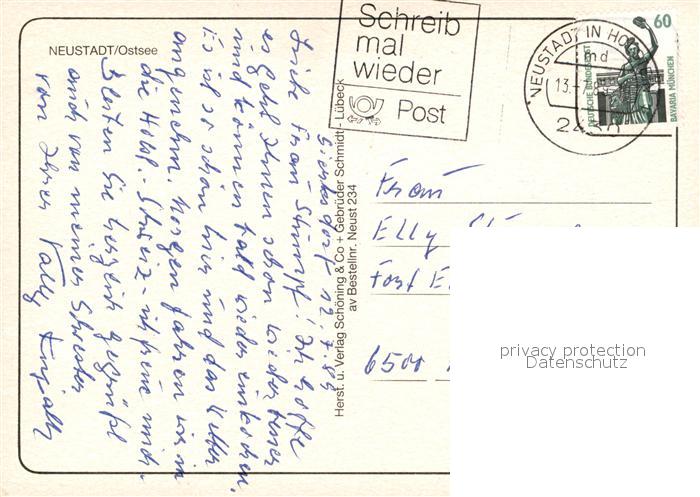 NEUSTADT/Ostsee
Schreib
mal
wieder
Post
NEUSTADT IN HO
md
13.-7.
2430
60
DEUTSCHE BUNDESPOST
BAVARIA MÜNCHEN
12.7.89
Liebe Frau Stumpf! Ich hoffe
es geht Ihnen schon wieder besser
und können bald wieder einkaufen.
Es ist so schön hier und das Wetter
angenehm. Morgen fahren wir in
die Holst. Schweiz - ich freue mich.
Seien Sie herzlich gegrüßt
auch von meiner Schwester
von Ihrer
Herst. u. Verlag Schöning & Co + Gebrüder Schmidt - Lübeck
av Bestellnr. Neust 234
Frau
Elly
6500
privacy protection
Datenschutz